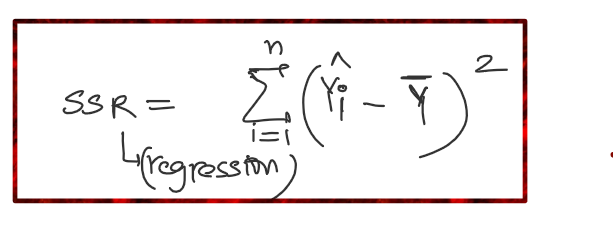 SSR = n∑i=1 (Ŷi - Ȳ)²
↳(regression)